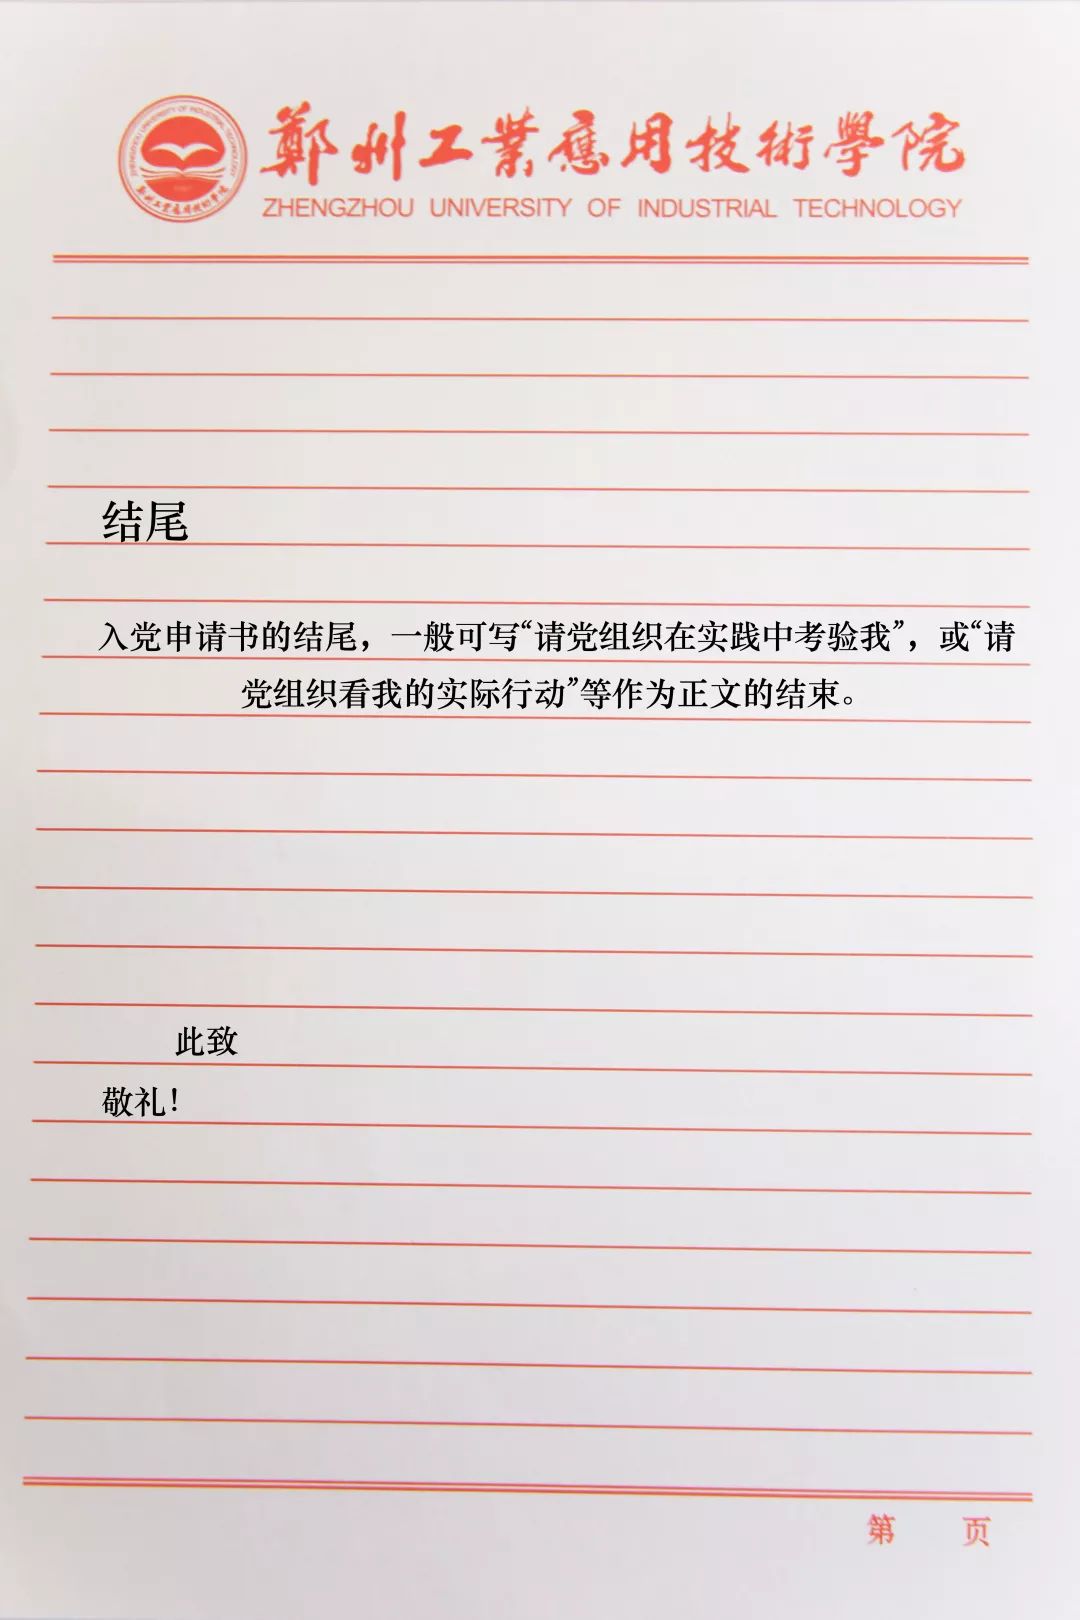 鄭州工業應用技術學院
ZHENGZHOU UNIVERSITY OF INDUSTRIAL TECHNOLOGY
ZHENGZHOU UNIVERSITY OF INDUSTRIAL TECHNOLOGY
鄭州工業應用技術學院
结尾
入党申请书的结尾，一般可写“请党组织在实践中考验我”，或“请
党组织看我的实际行动”等作为正文的结束。
此致
敬礼！
第 页